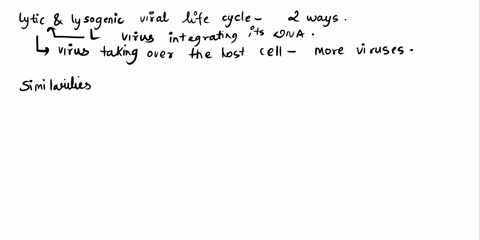 lytic & lysogenic viral life cycle - 2 ways.
virus integrating its DNA.
virus taking over the host cell - more viruses.
Similarities